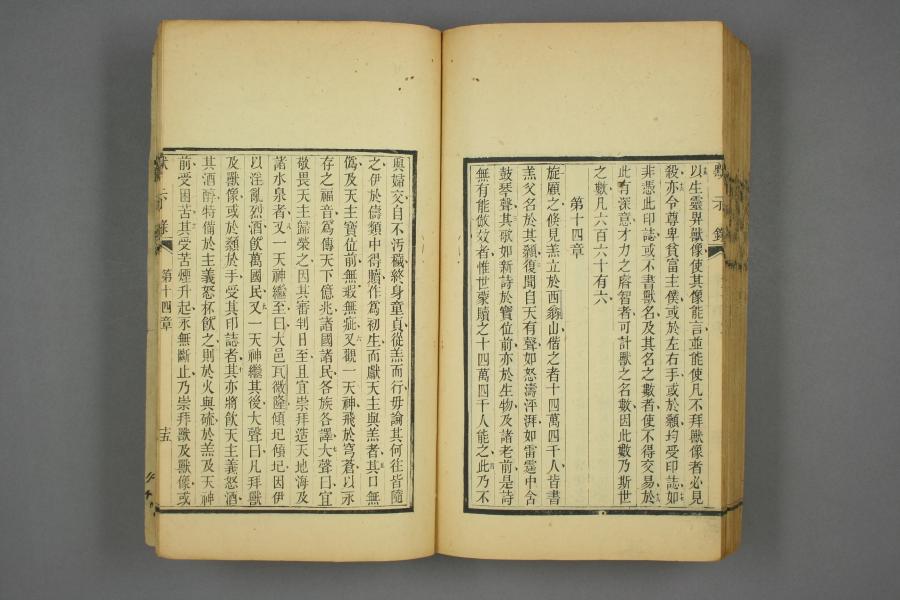 以生靈畀獸像使其像能言並能使凡不拜獸像者必見
殺亦令尊卑貧富主僕或於左右手或於顙均受印誌如
非憑此印誌或不書獸名及其名之數者使不得交易於
此有深意才力之睿智者可計獸之名數因此數乃斯世
之數凡六百六十有六
第十四章
旋顧之倏見羔立於西翁山偕之者十四萬四千人皆書
羔父名於其顙復聞自天有聲如怒濤泙湃如雷霆中含
鼓琴聲其歌如新詩於寶位前亦於生物及諸老前是詩
無有能倣效者惟世蒙贖之十四萬四千人能之此乃不
與婦交自不汚穢終身童貞從羔而行毋論其何往皆隨
之伊於儔類中得贖作爲初生而獻天主與羔者其口無
僞及天主寶位前無瑕無疵又觀一天神飛於穹蒼以永
存之福音爲傳天下億兆諸國諸民各族各譯大聲曰宜
敬畏天主歸榮之因其審判日至且宜崇拜造天地海及
諸水泉者又一天神繼至曰大邑瓦微隆傾圮傾圮因伊
以淫亂烈酒飲萬國民又一天神繼其後大聲曰凡拜獸
及獸像或於顙於手受其印誌者其亦將飲天主義怒酒
其酒醇特備於主義怒杯飲之則於火與硫於羔及天神
前受困苦其受苦煙升起永無斷止乃崇拜獸及獸像或
示錄
第十四章
十五